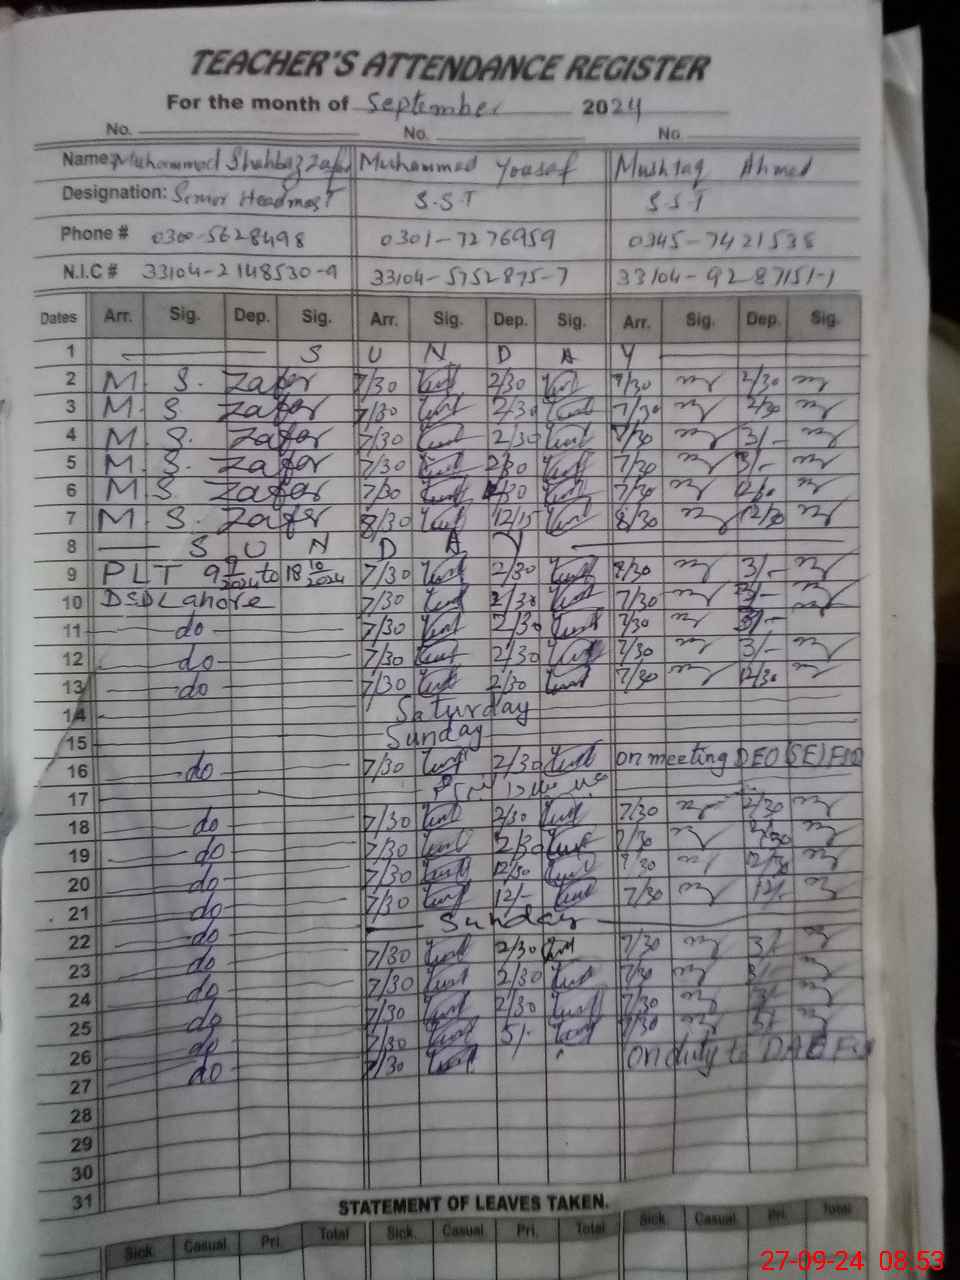 TEACHER'S ATTENDANCE REGISTER
For the month of September 2024
No. No. No.
Name: Muhammad Shahbaz Zafar Muhammad Yousaf Mushtaq Ahmed
Designation: Senior Headmast S.S.T S.S.T
Phone # 0300-5628498 0301-7276959 0345-7421538
N.I.C # 33104-2148530-9 33104-5752875-7 33104-9287151-1
Dates Arr. Sig. Dep. Sig. Arr. Sig. Dep. Sig. Arr. Sig. Dep. Sig.
1 S U N D A Y
2 M. S. Zafar 7/30 2/30 7/30 2/30
3 M. S. Zafar 7/30 2/30 7/30 2/30
4 M. S. Zafar 7/30 2/30 7/30 3/-
5 M. S. Zafar 7/30 2/30 7/30 3/-
6 M. S. Zafar 7/30 7/30
7 M. S. Zafar 8/30 12/15 8/30 12/30
8 S U N D A Y
9 PLT 9 9/2024 to 18 10/2024 7/30 2/30 7/30 3/-
10 DSD Lahore 7/30 2/30 7/30 3/-
11 do 7/30 2/30 7/30 3/-
12 do 7/30 2/30 7/30 3/-
13 do 7/30 2/30 7/30 12/30
14 Saturday
15 Sunday
16 do 7/30 2/30 on meeting DEO (SE) FSD
17
18 do 7/30 2/30 7/30 2/30
19 do 7/30 2/30 7/30
20 do 7/30 12/30 7/30 12/30
21 do 7/30 12/- 7/30 12/-
22 do Sunday
23 do 7/30 2/30 7/30 3/-
24 do 7/30 2/30 7/30 3/-
25 do 7/30 2/30 7/30 3/-
26 do 7/30 5/- 7/30 5/-
27 do 7/30 on duty to
28
29
30
31
STATEMENT OF LEAVES TAKEN.
Sick Casual Pri. Total Sick. Casual Pri. Total Sick. Casual. Pri. Total
27-09-24 08.53